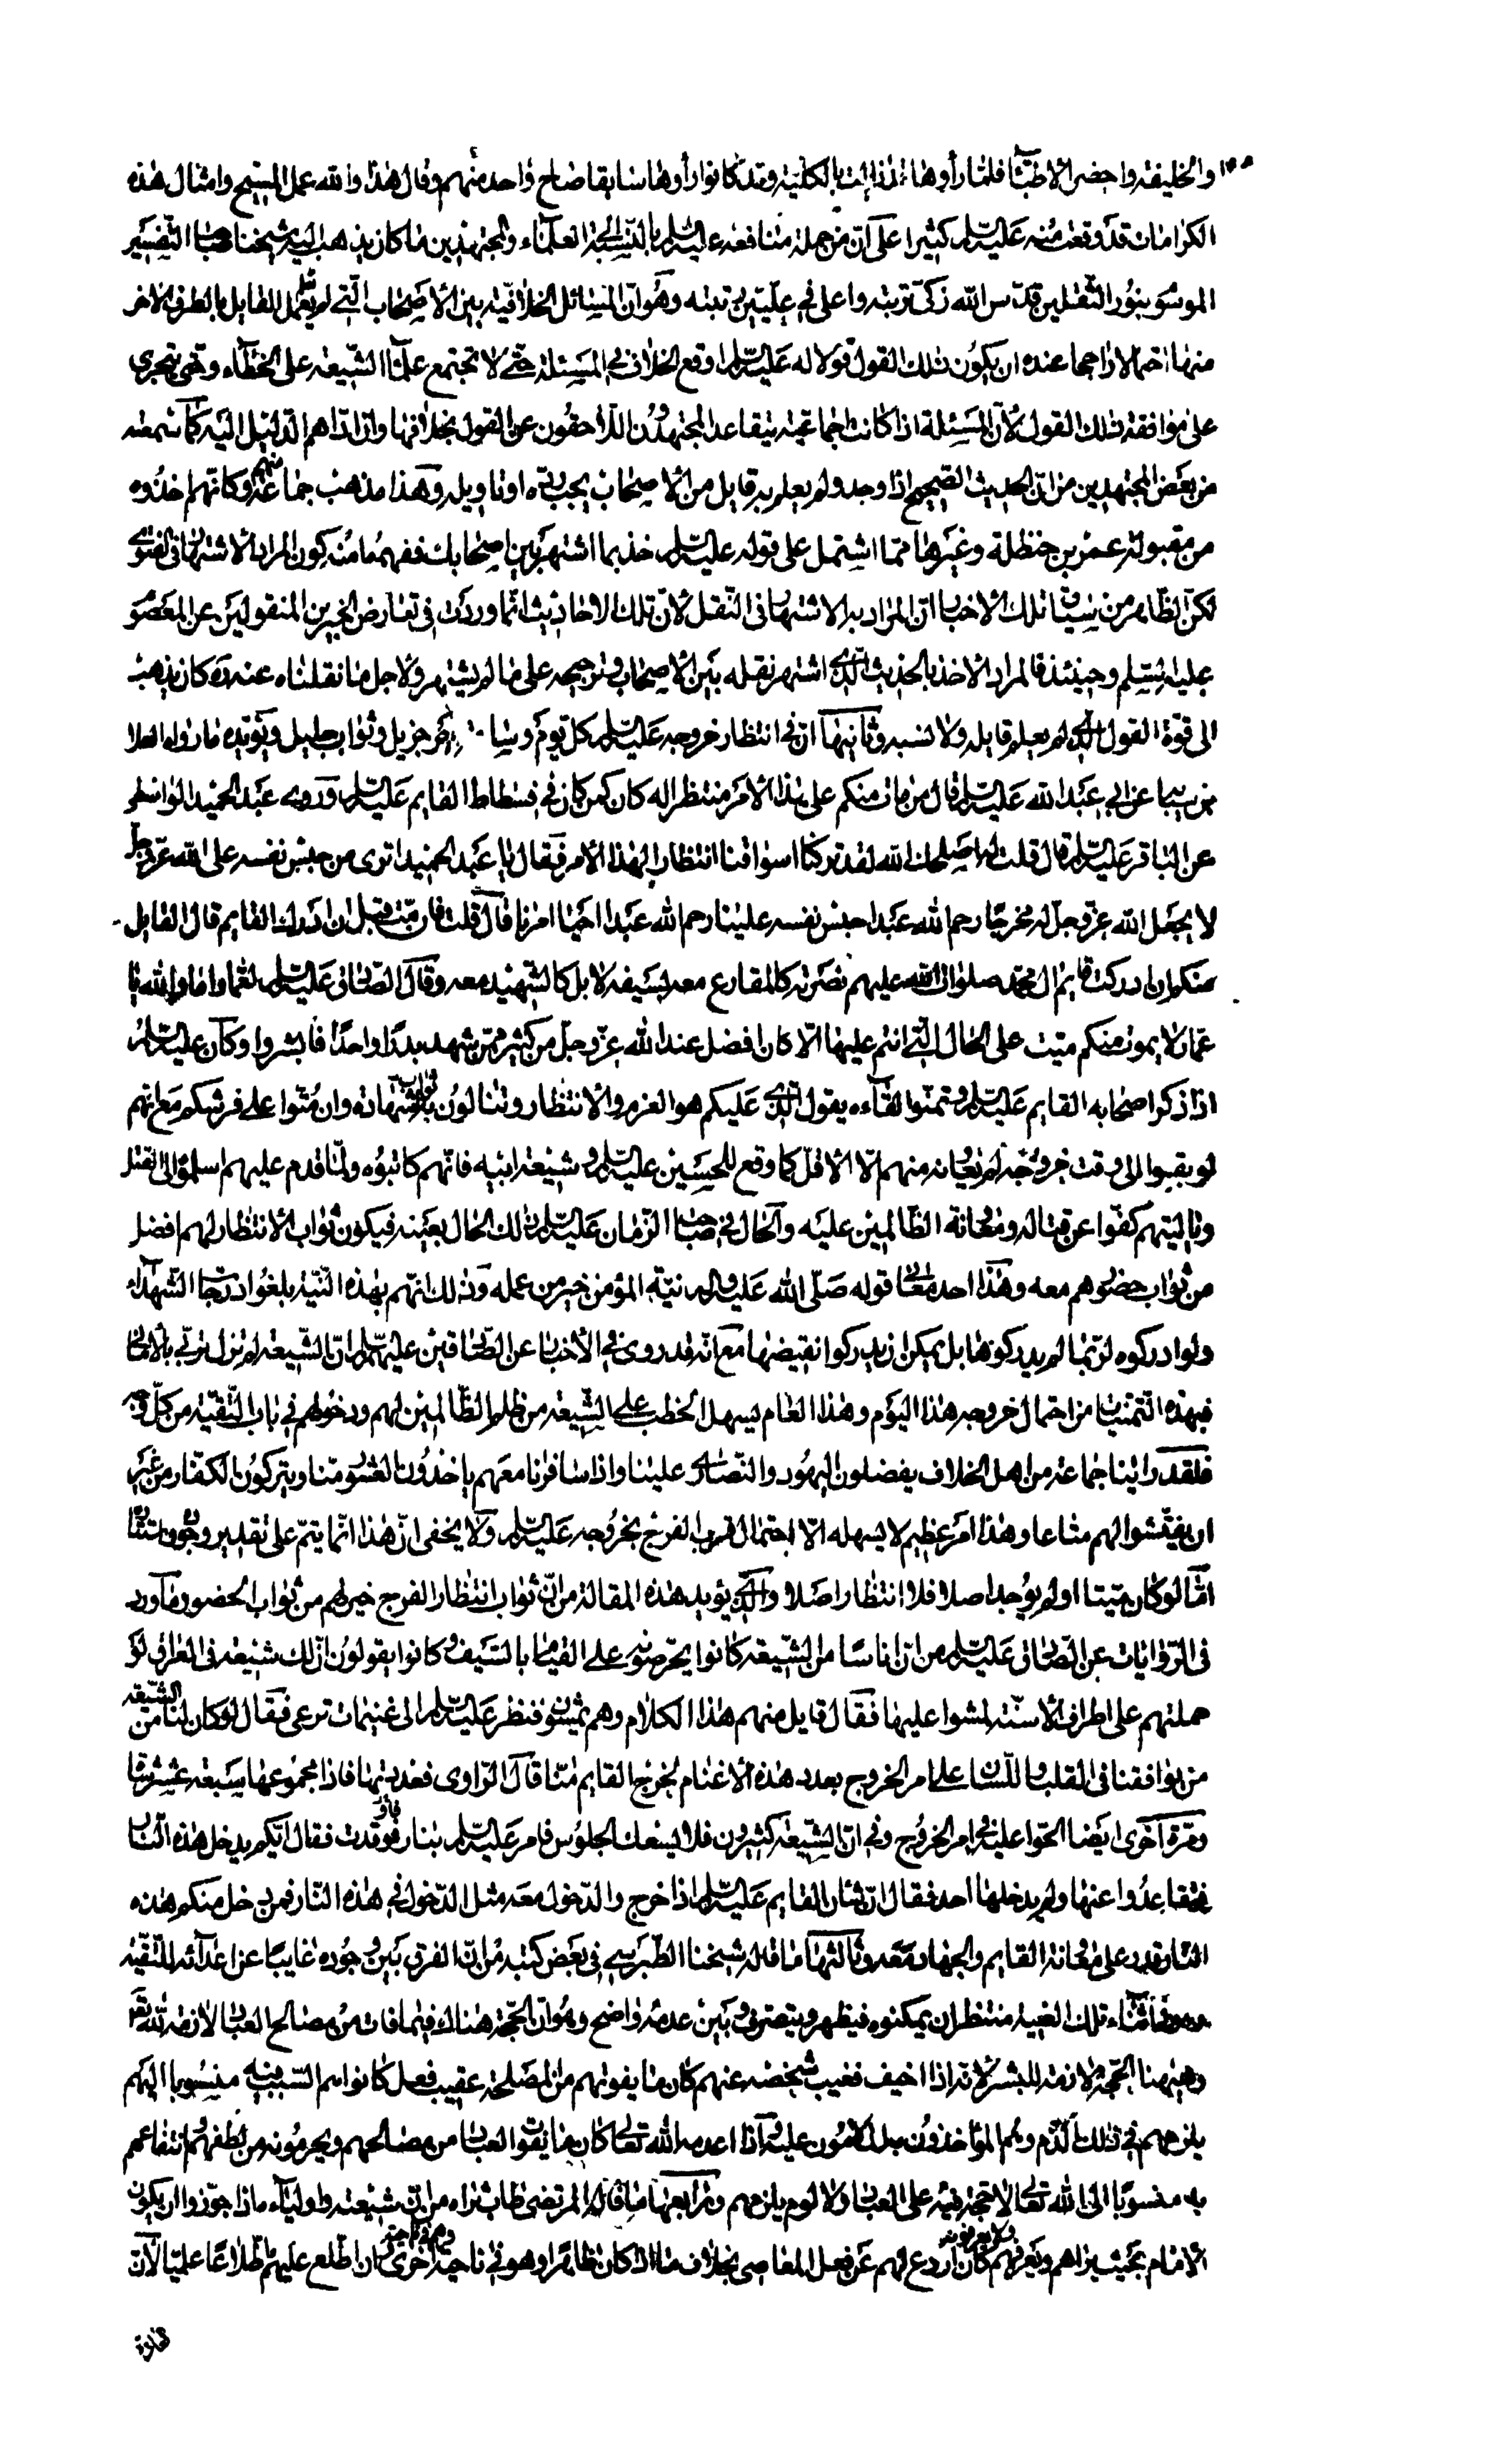 والخليفة واحضر الاطبّآء فلمّا رأوها اذا زالت بالكليّة وقد كانوا رأوها سابقا صاح واحد منهم وقال هذا والله عمل المسيح وامثال هذه
الكرامات قد وقعت منه عَليْه السّلم كثيرا على انّ من جملة منافعه عليْه السّلم بالنّسبة الى العلمآء والمجتهدين ما كان يذهب اليه شيخنا صاحب التّفسير
الموسوم بنور الثّقلين قدّس الله زكىّ تربته واعلى في علّيّين رتبته وهو انّ المسائل الخلافيّة بين الاصحاب الّتي لم يعلم القايل بالطرف الاخر
منها احتمالا راجحا عنده ان يكون ذلك القول قولا له عَليْه السّلم اوقع الخلاف في المسئلة حتّى لا تجتمع علمآء الشّيعة على الخطآء وحتى يتجرى
على موافقة ذلك القول لأنّ المسئلة اذا كانت اجماعيّة يتقاعد المجتهدون اللّاحقون عن القول بخلافها وان ادّاهم الدّليل اليه كما سمعته
من بعض المجتهدين من انّ الحديث الصّحيح اذا وجد ولم يعلم به قايل من الاصحاب يجب ردّه او تاويله وهذا مذهب جماعة منهم وكانّهم اخذوه
من مقبولة عمر بن حنظلة وغيرها ممّا اشتمل على قوله عليْه السّلم خذ بما اشتهر بين اصحابك ففهموا منه كون المراد الاشتهار في الفتوى
لكنّ الظّاهر من سياق تلك الاخبار انّ المراد به الاشتهار في النّقل لانّ تلك الاحاديث انّما وردت في تعارض الخبرين المنقولين عن المعصوم
عليه السّلم وحينئذ فالمراد الاخذ بالحديث الّذي اشتهر نقله بين الاصحاب وترجيحه على ما لم يشتهر ولاجل ما نقلناه عنه ره كان يذهب
الى قوّة القول الّذي لم يعلم قايله ولا نسبه وثانيها انّ في انتظار خروجه عَليْه السّلم كلّ يوم وساعة اجر جزيل وثواب جليل ويؤيّده ما رواه العلا
بن سيابه عن ابي عبد الله عَليْه السّلم قال من مات منكم على هذا الامر منتظرا له كان كمن كان في فسطاط القايم عَليْه السّلم وروى عبد الحميد الواسطي
عن الباقر عَليْه السّلم قال قلت له اصلحك الله لقد تركنا اسواقنا انتظارا لهذا الامر فقال يا عبد الحميد اترى من حبس نفسه على الله عزّ وجلّ
لا يجعل الله عزّ وجلّ له مخرجا رحم الله عبدا حبس نفسه علينا رحم الله عبدا احيا امرنا قال قلت فان متّ قبل ان ادرك القايم قال القايل
منكم ان ادركت قايم ال محمّد صلوات الله عليهم نصرته كالمقارع معه بسيفه لا بل كالشّهيد معه وقال الصّادق عَليْه السّلم لعمّار اما والله يا
عمّار لا يموت منكم ميّت على الحال الّتي انتم عليها الّا كان افضل عند الله عزّ وجلّ من كثير ممّن شهد بدرا واحدا فابشروا وكان عليْه السّلم
اذا ذكر اصحابه القايم عَليْه السّلم وتمنّوا لقآءه يقول الّذي عليكم هو العزم والانتظار وتنالون ثواب الشهادة وان متّوا على فرشكم مع انّهم
لو بقيوا الى وقت خروجه لم يعاونه منهم الّا الاقلّ كما وقع للحسين عليْه السّلم وشيعة ابيه فانّهم كاتبوه ولمّا قدم عليهم اسلموه الى القتل
ويا ليتهم كفّوا عن قتاله ومعانة الظّالمين عليه والحال في صاحب الزّمان عَليْه السّلم ذلك الحال بعينه فيكون ثواب الانتظار لهم افضل
من ثواب حضورهم معه وهذا احد معاني قوله صلّى الله عَليْه واله نيّة المؤمن خير من عمله وذلك انّهم بهذه النّيّة بلغوا درجات الشّهدآء
ولو ادركوه لربّما لم يدركوها بل يمكن ان يدركوا نقيضها مع انّه قد روى في الاخبار عن الصّادقين عليهم السّلم انّ الشّيعة لم تزل تربّى بالاماني
فبهذه التّمنيّات من احتمال خروجه هذا اليوم وهذا العام يسهل الخطب على الشّيعة من ظلم الظّالمين لهم ودخولهم في باب التّقيّة من كلّ وجه
فلقد راينا جماعة من اهل الخلاف يفضلون اليهود والنّصارى علينا واذا سافرنا معهم ياخذون العشور منّا ويتركون الكفّار من غير
ان يفتّشوا لهم متاعا وهذا امر عظيم لا يسهله الّا احتمال قرب الفرج بخروجه عَليْه السّلم ولا يخفى انّ هذا انّما يتمّ على تقدير وجوده واستتاره
امّا لو كان ميّتا او لم يوجد اصلا فلا انتظار اصلا والّذي يؤيد هذه المقالة من انّ ثواب انتظار الفرج خير لهم من ثواب الحضور ما ورد
في الرّوايات عن الصّادق عَليْه السّلم من انّ اناسا من الشّيعة كانوا يحرّضونه على القيام بالسّيف وكانوا يقولون انّ لك شيعة في العراق لو
حملتهم على اطراف الاسنّة لمشوا عليها فقال قايل منهم هذا الكلام وهم يمشون فنظر عَليْه السّلم الى غنيمات ترعى فقال لو كان لنا من الشّيعة
من يوافقنا في القلب واللّسان على امر الخروج بعدد هذه الاغنام لخرج القايم منّا قال الرّاوى فعددتها فاذا مجموعها سبعة عشر شاة
ومرّة اخرى ايضا الحّوا عليه في امر الخروج وفي انّ الشّيعة كثيرون فلا يسعك الجلوس فامر عَليْه السّلم بنار فاوقدت فقال ايّكم يدخل هذه النّار
فتقاعدوا عنها ولم يدخلها احد فقال انّ شان القايم عَليْه السّلم اذا خرج والدّخول معه مثل الدّخول في هذه النّار فمن دخل منكم هذه
النّار قدر على معانة القايم والجهاد معه وثالثها ما قاله شيخنا الطّبرسي في بعض كتبه من انّ الفرق بين وجوده غايبا عن اعدآئه للتّقيّة
وهو في اثنآء تلك الغيبة منتظر ان يمكنوه فيظهر ويتصرف وبين عدمه واضح وهو انّ الحجّة هناك فيما فات من مصالح العباد لازمة لله تعالى
وهيهنا الحجّة لازمة للبشر لانّه اذا اخيف فغيب شخصه عنهم كان ما يفوتهم من المصلحة عقيب فعل كانوا هم السّبب فيه منسوبا اليهم
يلزمهم في ذلك الذّم وهم المؤاخذون به الملامون عليه واذا اعدمه الله تعالى كان ما يفوت العباد من مصالحهم ويحرمونه من لطفهم وانتفاعهم
به منسوبا الى الله تعالى لا حجّة فيه على العباد ولا لوم يلزمهم ورابعها ما قاله المرتضى طاب ثراه من انّ شيعته واوليآءه اذا جوّزوا ان يكون
الامام بحيث يراهم ويعرفهم ولا يعرفونه كان اردع لهم عن فعل المعاصي بخلاف ما اذا كان ظاهرا وهو في ناحية وهم في ناحية اخرى وان اطّلع عليهم اطّلاعا علميّا لانّ